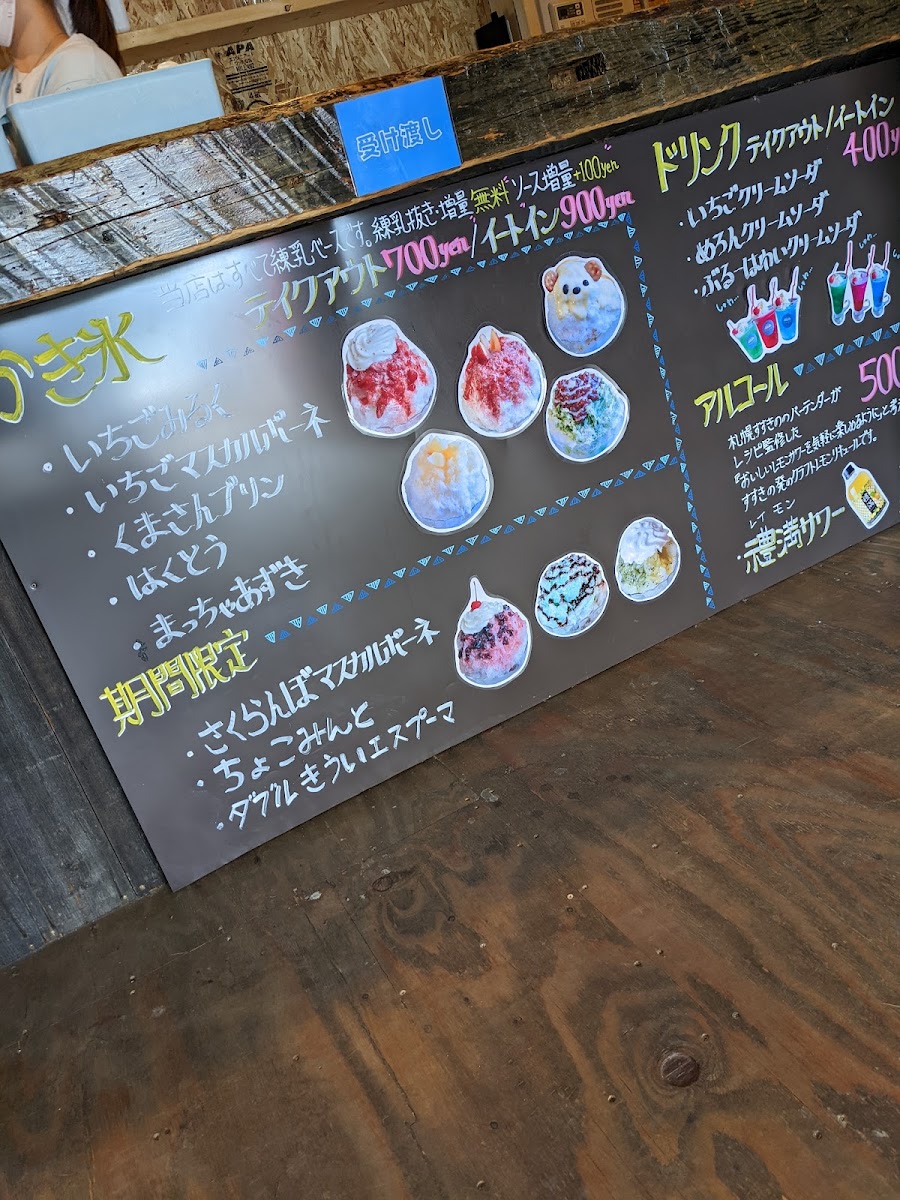 APA
受け渡し
当店はすべて練乳ベースです。練乳抜き・増量"無料"ソース増量+100yen
かき氷
テイクアウト700yen/イートイン900yen
・いちごみるく
・いちごマスカルポーネ
・くまさんプリン
・はくとう
・まっちゃあずき
期間限定
・さくらんぼマスカルポーネ
・ちょこみんと
・ダブルきういエスプーマ
ドリンク テイクアウト/イートイン
400y
・いちごクリームソーダ
・めろんクリームソーダ
・ぶるーはわいクリームソーダ
アルコール 500
札幌すすきののバーテンダーが
レシピ監修した
『おいしいレモンサワーを気軽に楽しめるように』と考
すすきの発のクラフトレモンリキュールです。
レイ モン
・禮満サワー